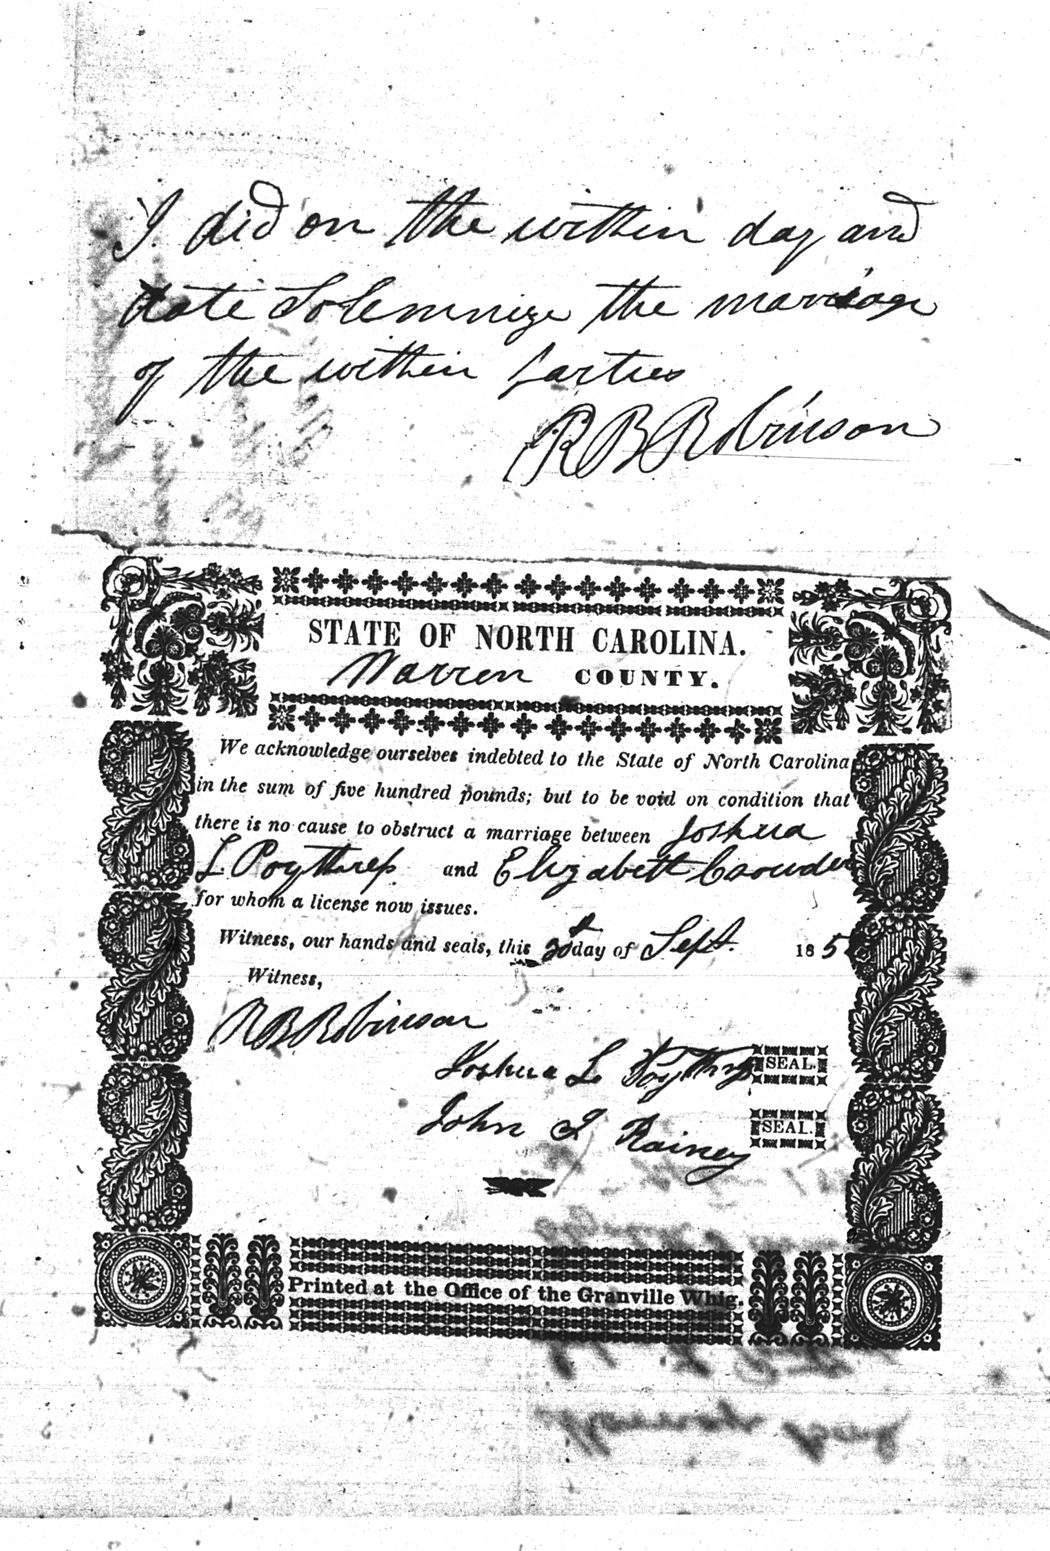 I did on the within day and
date Solemnize the marriage
of the within parties
R B Robinson
STATE OF NORTH CAROLINA.
Warren COUNTY.
We acknowledge ourselves indebted to the State of North Carolina
in the sum of five hundred pounds; but to be void on condition that
there is no cause to obstruct a marriage between Joshua
L Poythress and Elizabeth Crowder
for whom a license now issues.
Witness, our hands and seals, this day of Sept. 185
Witness,
R B Robinson
Joshua L Poythress SEAL.
John J Rainey SEAL.
Printed at the Office of the Granville Whig.